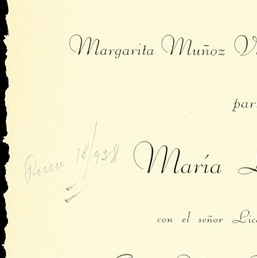 Margarita Muñoz V
par
18/938
María
con el señor Lic